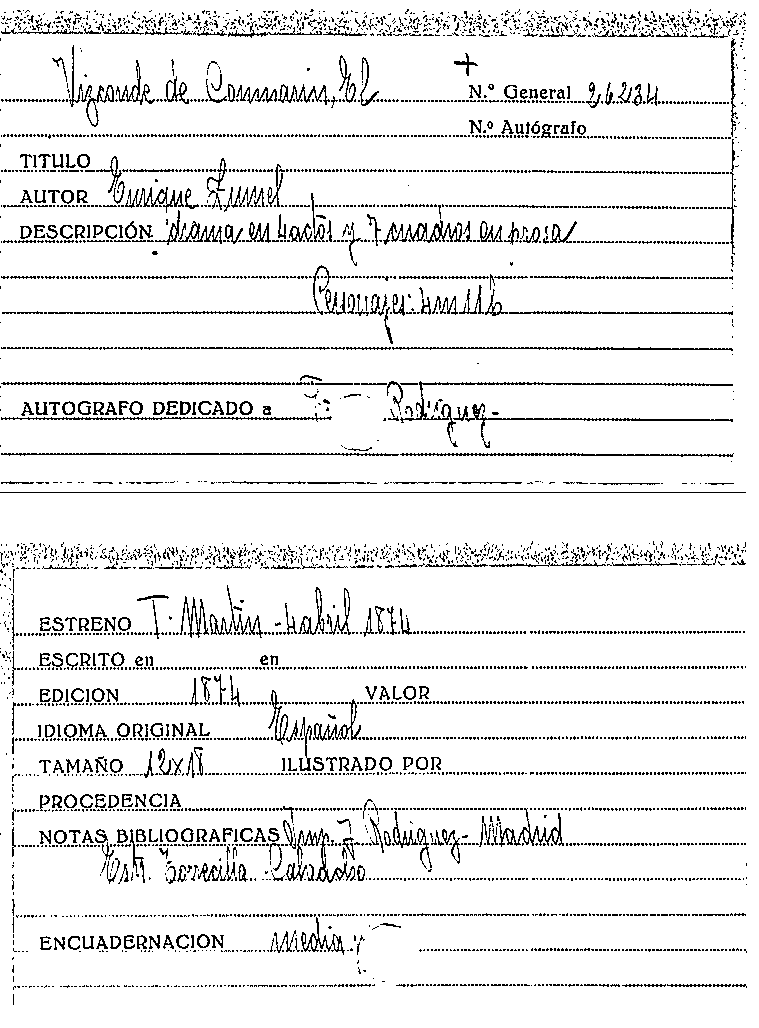 Vizconde de Commarin, El
N.º General 26234
N.º Autógrafo
TITULO
AUTOR Enrique Zumel
DESCRIPCIÓN drama en 4 actos y 7 cuadros en prosa
Personajes: 4m 11h
AUTOGRAFO DEDICADO a Rodriguez-
ESTRENO T. Martin - 4 abril 1874
ESCRITO en en
EDICION 1874 VALOR
IDIOMA ORIGINAL Español
TAMAÑO 12x18 ILUSTRADO POR
PROCEDENCIA
NOTAS BIBLIOGRAFICAS Imp. J. Rodriguez - Madrid
Estr.
ENCUADERNACION media